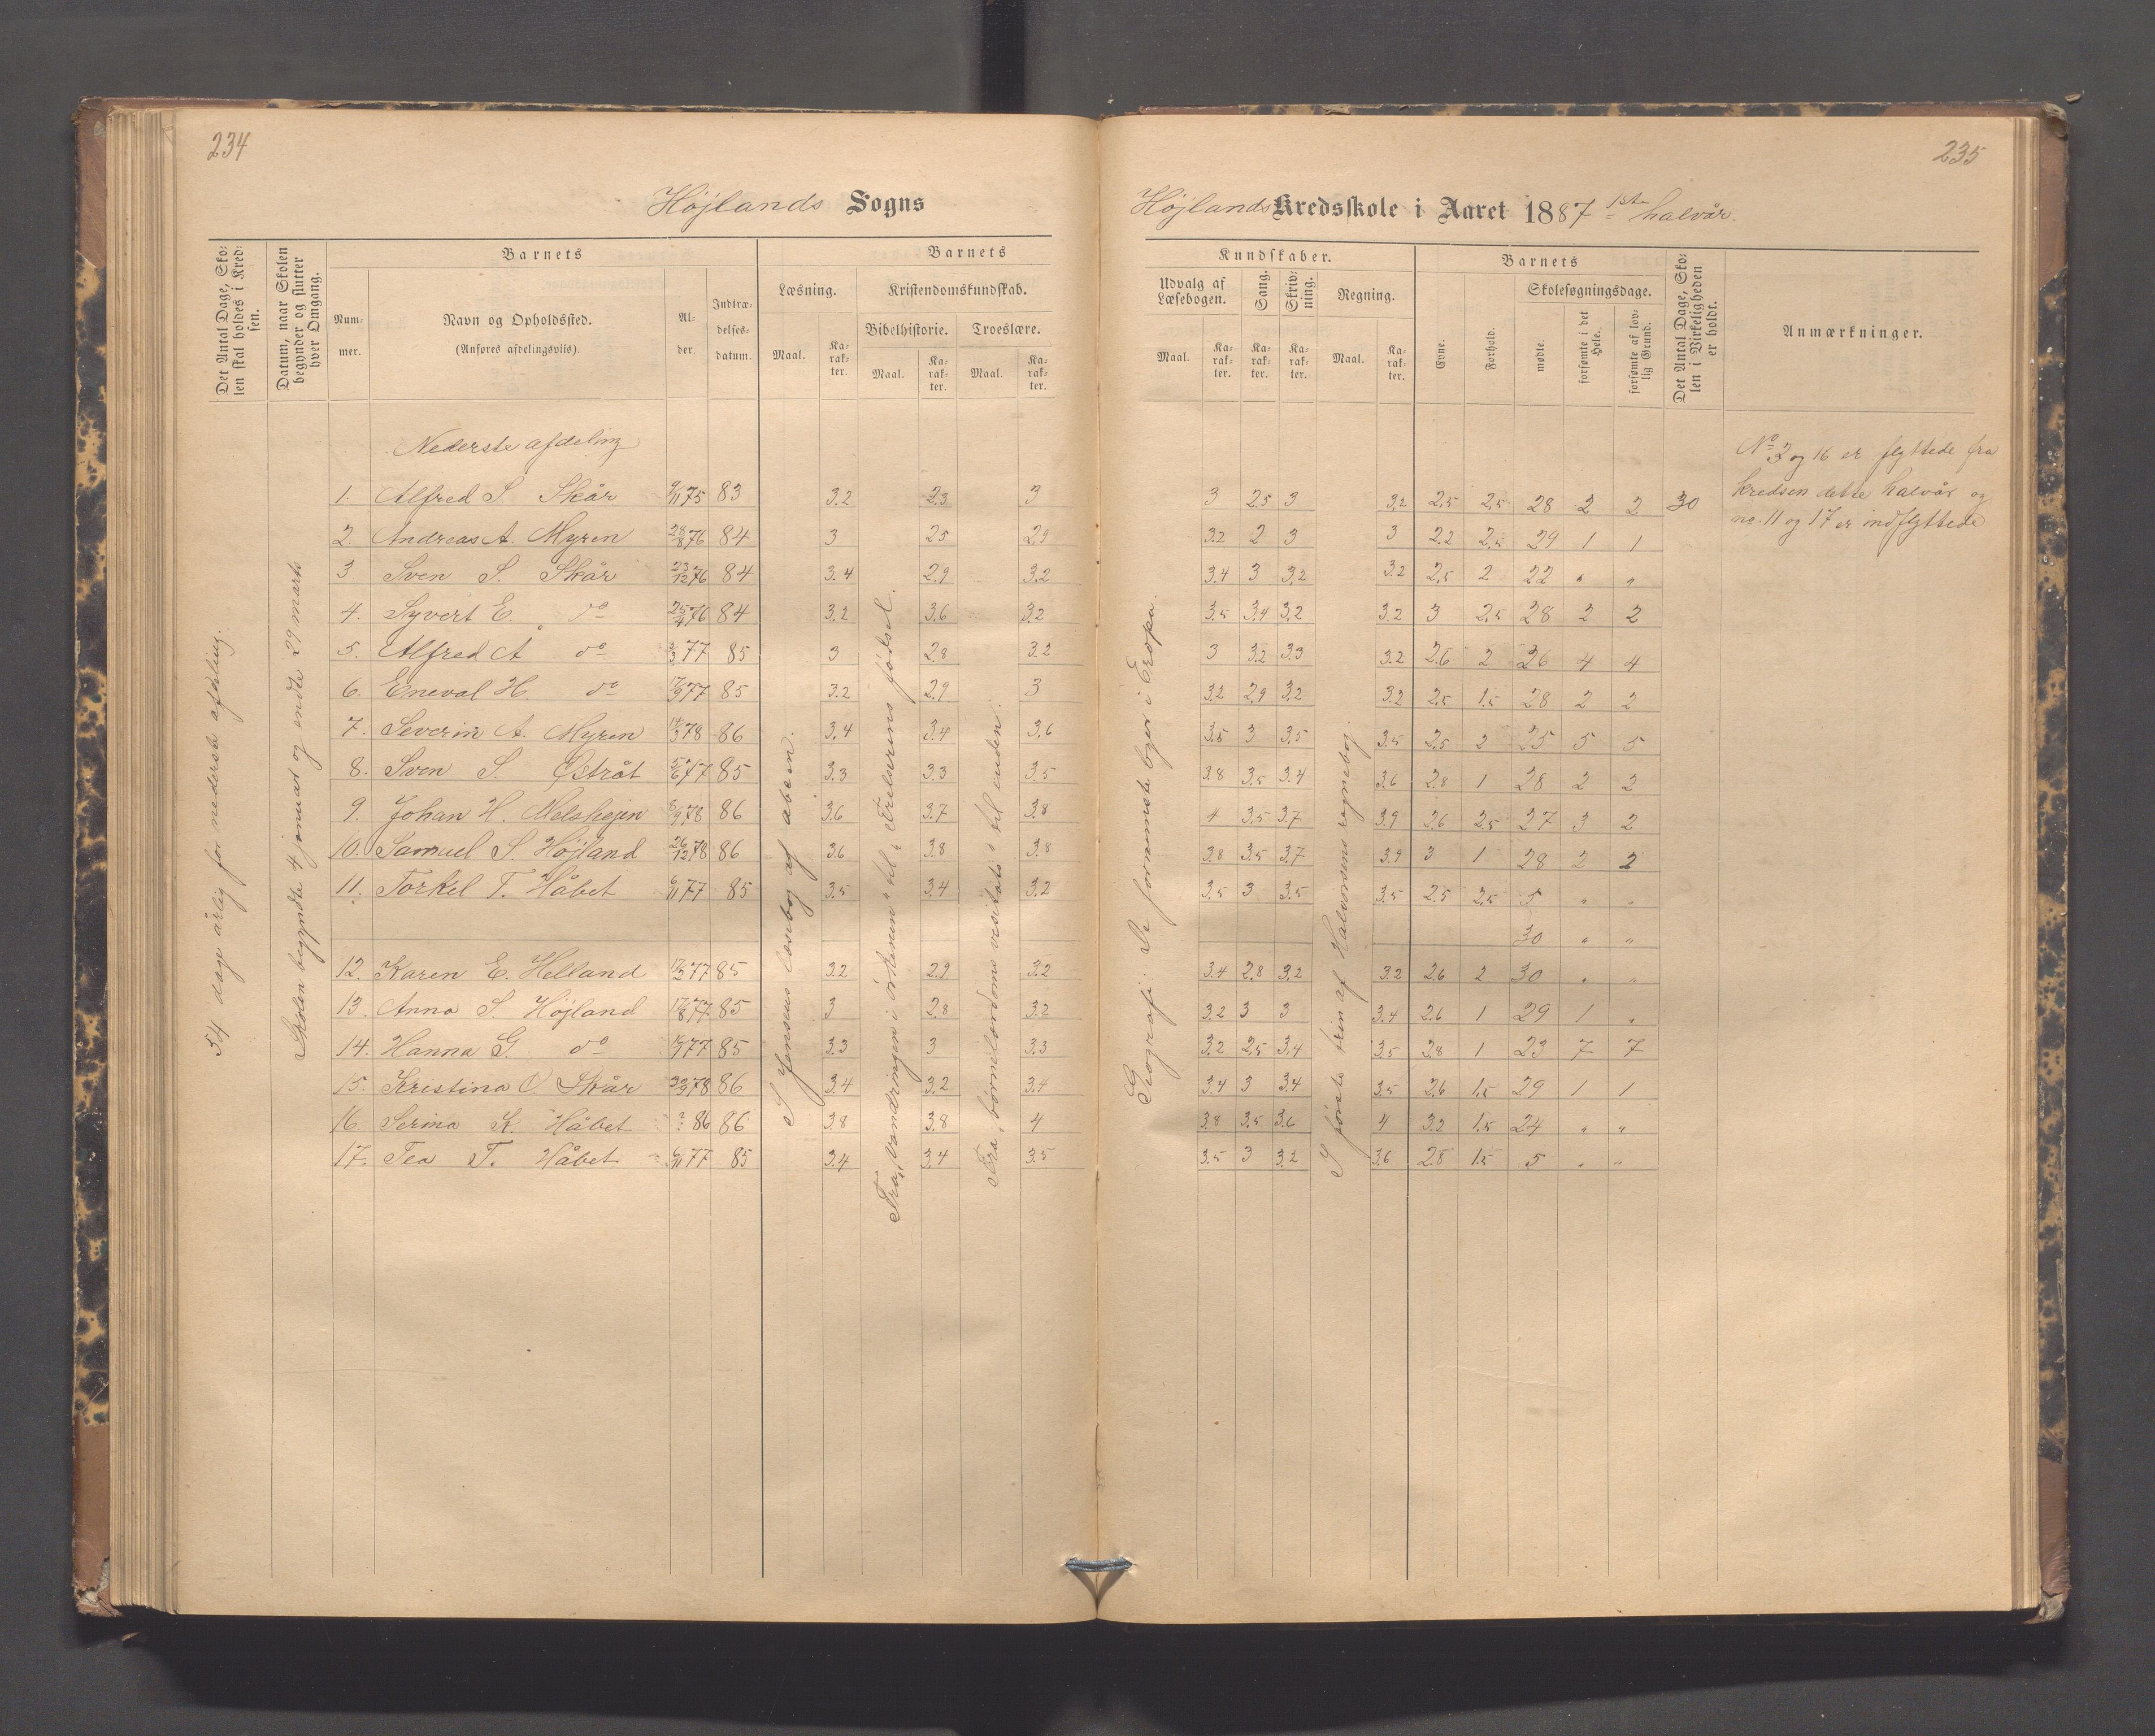 234
Højlands Sogns
Det Antal Dage, Sko-
len skal holdes i Kred-
sen.
Datum, naar Skolen
begynder og slutter
hver Omgang.
Barnets
Num-
mer.
Navn og Opholdssted.
(Anføres afdelingsviis).
Al-
der.
Indtræ-
delses-
datum.
Barnets
Læsning.
Kristendomskundskab.
Bibelhistorie.
Troeslære.
Maal.
Ka-
rak-
ter.
Maal.
Ka-
rak-
ter.
Maal.
Ka-
rak-
ter.
54 dage årlig for nederste afdeling.
Skolen begyndte 4 januar og endte 29 marts
Nederste afdeling
1. Alfred S. Skår 9/11 75 83 3.2 2.3 3
2. Andreas A. Myren 28/8 76 84 3 2.5 2.9
3 Sven S. Skår 23/12 76 84 3.4 2.9 3.2
4. Syvert E. do 76 84 3.2 3.6 3.2
5. Alfred A do 77 85 3 2.8 3.2
6. Eneval H. do 17/9 77 85 3.2 2.9 3
7. Severin A. Myren 14/3 78 86 3.4 3.4 3.6
8. Sven S. Østråt 77 85 3.3 3.3 3.5
9. Johan H. Melshejen 8/9 78 86 3.6 3.7 3.8
10. Samuel S. Højland 26/12 78 86 3.6 3.8 3.8
11. Torkel T. Håbet 6/11 77 85 3.5 3.4 3.2
12. Karen E. Helland 17/2 77 85 3.2 2.9 3.2
13. Anna S. Højland 17/8 77 85 3 2.8 3.2
14. Hanna G. do 77 85 3.3 3 3.3
15. Kristina O. Skår 78 86 3.4 3.2 3.4
16. Serina K. Håbet ? 86 86 3.8 3.8 4
17. Tea T. Håbet 6/11 77 85 3.4 3.4 3.5
I Jensens læsebog af abcen.
Fra „vandringen i ørkenen" til „Frelserens fødsel.
Fra „børnelærdoms visitats" til enden.
235
Højlands Kredsskole i Aaret 1887 1ste halvår.
Kundskaber.
Udvalg af
Læsebogen.
Sang.
Skriv-
ning.
Regning.
Maal.
Ka-
rak-
ter.
Ka-
rak-
ter.
Ka-
rak-
ter.
Maal.
Ka-
rak-
ter.
Barnets
Evne.
Forhold.
Skolesøgningsdage.
mødte.
forsømte i det
Hele.
forsømte af lov-
lig Grund.
Det Antal Dage, Sko-
len i Virkeligheden
er holdt.
Anmærkninger.
Geografi: De fornemste byer i Eropa.
I første trin af Halvorsens regnebog.
3 2.5 3 3.2 2.5 2.5 28 2 2 30
3.2 2 3 3 2.2 2.5 29 1 1
3.4 3 3.2 3.2 2.5 2 22 " "
3.5 3.4 3.2 3.2 3 2.5 28 2 2
3 3.2 3.3 3.2 2.6 2 26 4 4
3.2 2.9 3.2 3.2 2.5 1.5 28 2 2
3.5 3 3.5 3.5 2.5 2 25 5 5
3.8 3.5 3.4 3.6 2.8 1 28 2 2
4 3.5 3.7 3.9 2.6 2.5 27 3 2
3.8 3.5 3.7 3.9 3 1 28 2 2
3.5 3 3.5 3.5 2.5 2.5 5 " "
30 " "
3.4 2.8 3.2 3.2 2.6 2 30 " "
3.2 3 3 3.4 2.6 1 29 1 "
3.2 2.5 3.4 3.5 2.8 1 23 7 7
3.4 3 3.4 3.5 2.6 1.5 29 1 1
3.8 3.5 3.6 4 3.2 1.5 24 " "
3.5 3 3.2 3.6 2.8 1.5 5 " "
No 3 og 16 er flyttede fra
kredsen dette halvår og
no. 11 og 17 er indflyttede